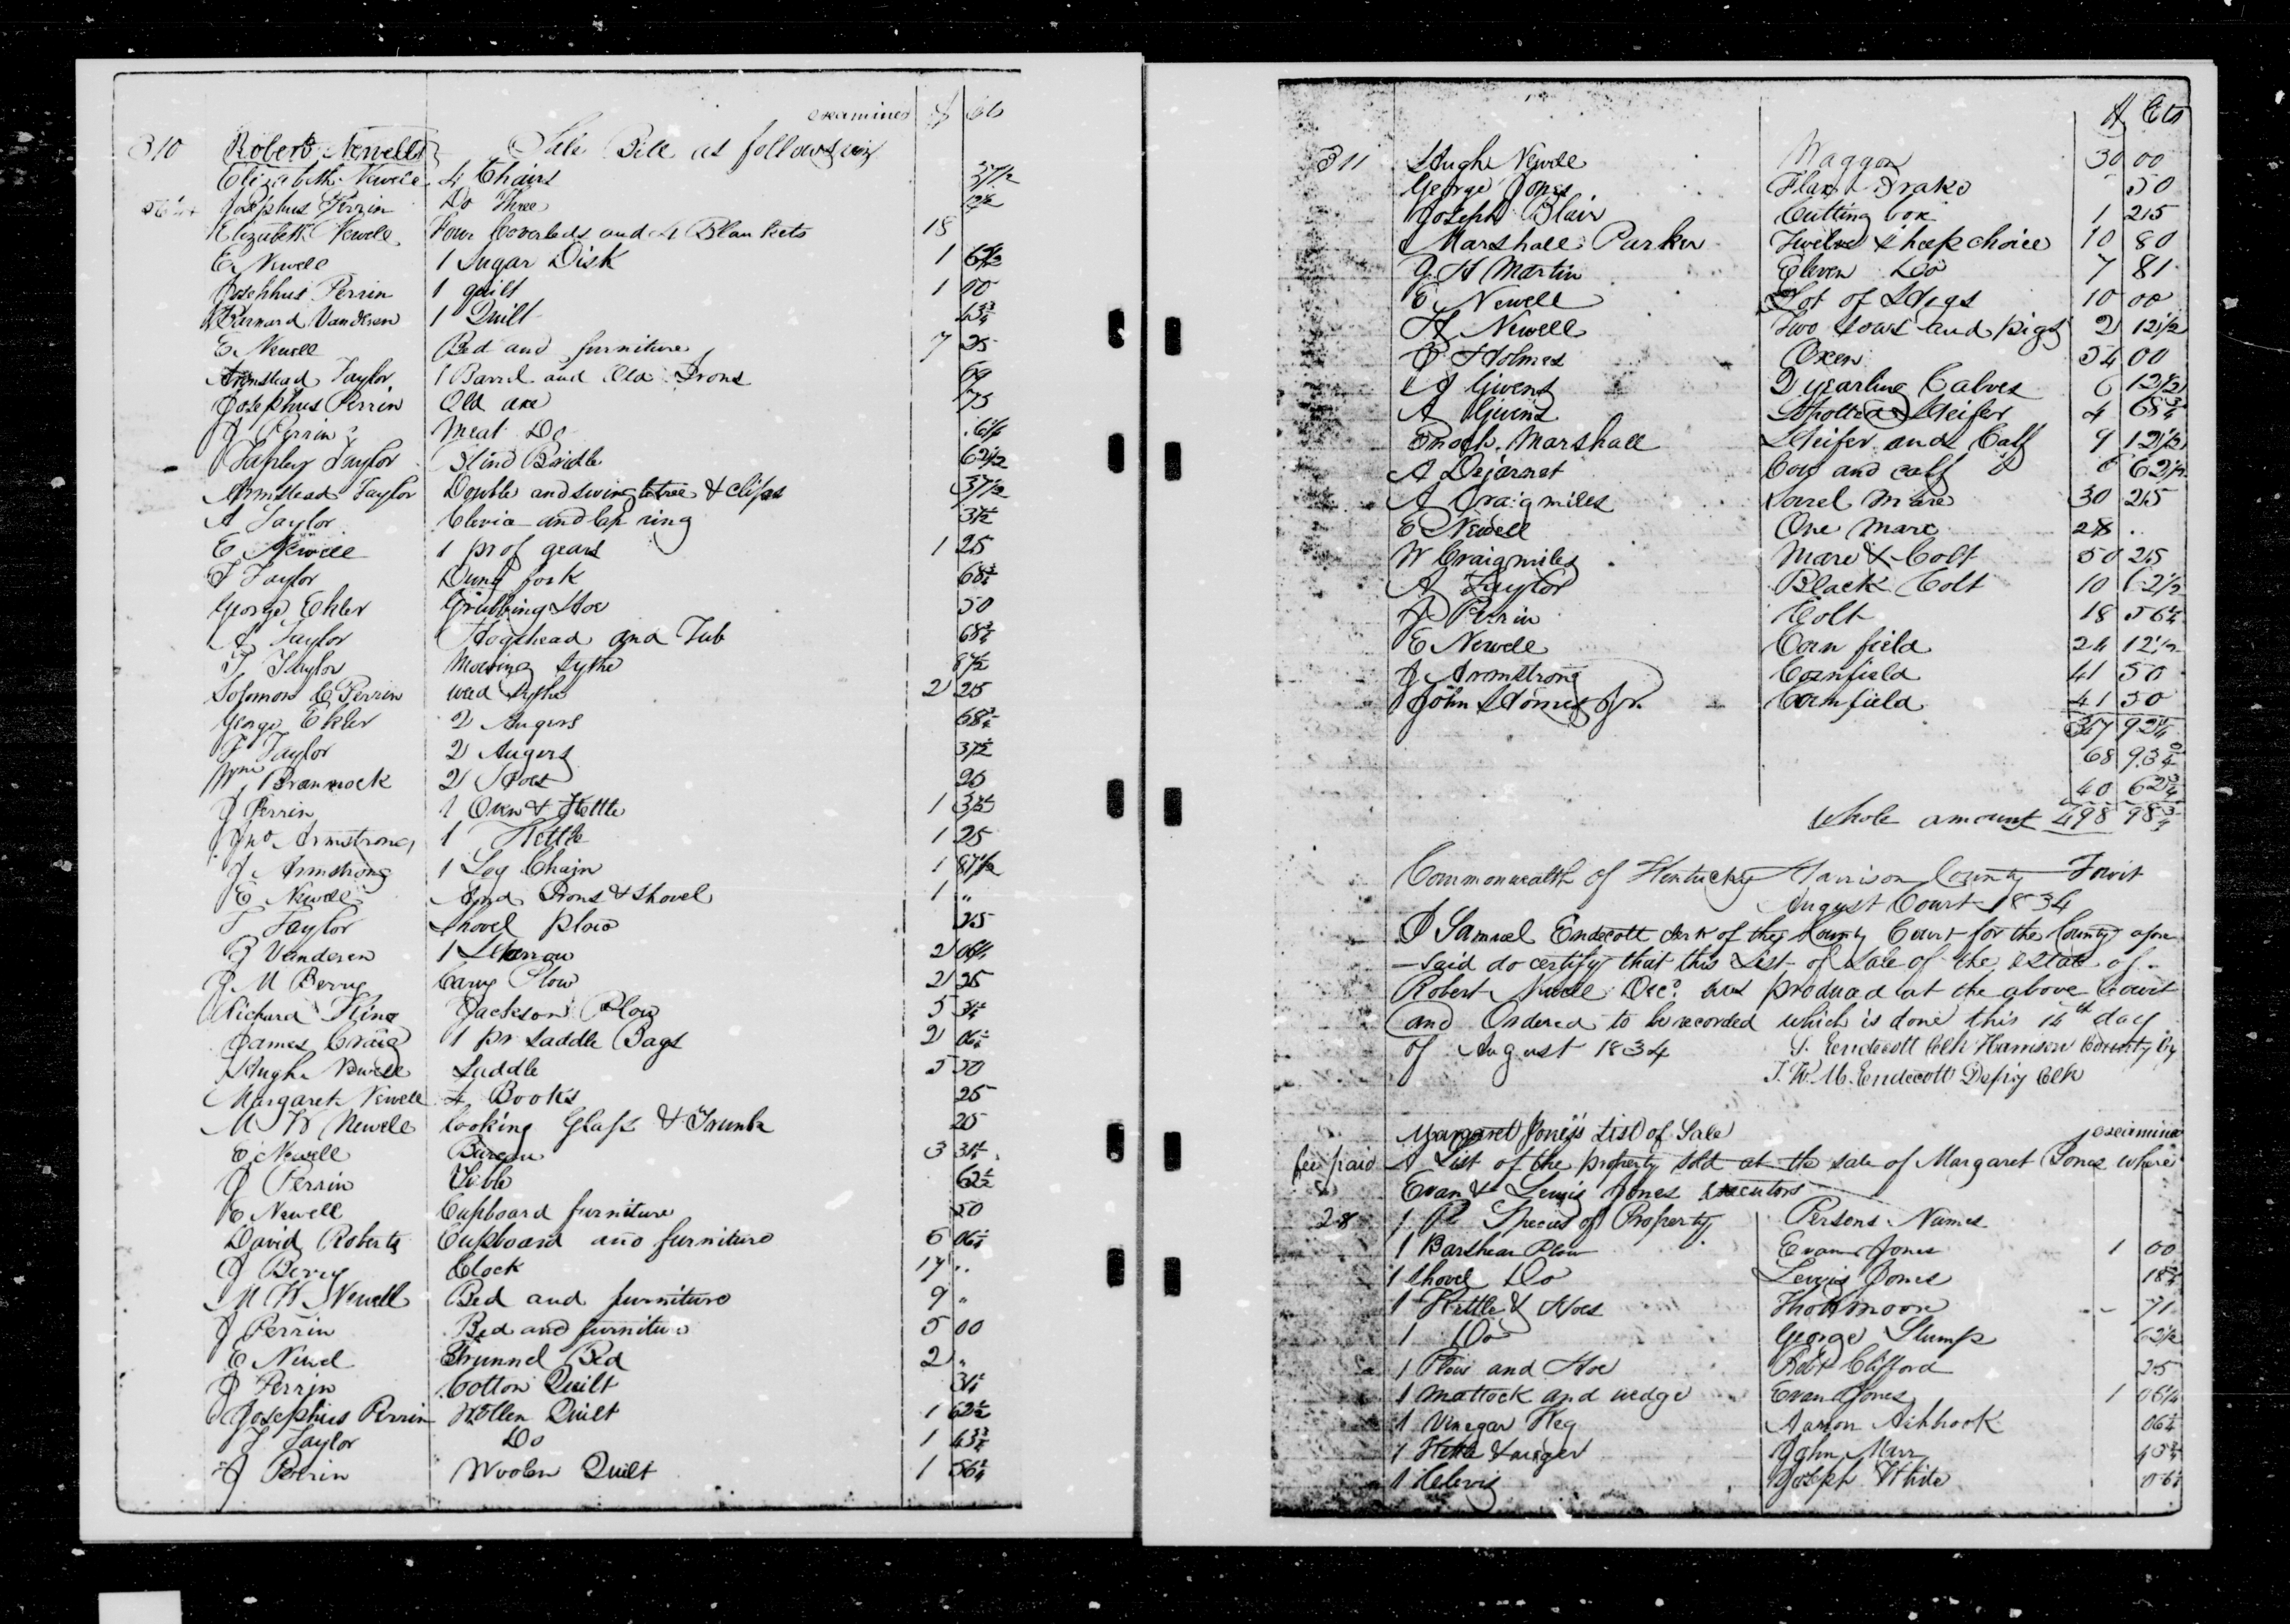 examined $ Cts
310 Robert Newells Sale Bill as follows viz
Elizabeth Newell 4 Chairs 37 1/2
56 1/4 Josephus Perrin Do Three
Elizabeth Newell Four Coverleds and 4 Blankets 18
E. Newell 1 Sugar Disk 1
Josephus Perrin 1 quilt 1 00
Barnard Vanderen 1 Quilt 43 3/4
E. Newell Bed and furniture 7 25
Armstead Taylor 1 Barrel and Old Irons 69
Josephus Perrin Old axe 75
J Perrin Meat Do .6 1/4
Tapley Taylor Blind Bridle 62 1/2
Armstead Taylor Double and swingletree & clips 37 1/2
A Taylor Clevia and Cap ring 37 1/2
E Newell 1 pr of gears 1 25
T Taylor Dung fork 68 3/4
George Ekler Grubbing Hoe 50
A Taylor Hogshead and Tub 68 3/4
T. Taylor Mowing sythe 87 1/2
Solomon C Perrin weed sythe 2 25
George Ekler 2 Augers 68 3/4
T Taylor 2 Augers 37 1/2
Wm Brannock 2 Hoes 25
J Perrin 1 Oven & Kettle 1 37 1/2
Jno Armstrong 1 Kettle 1 25
J Armstrong 1 Log Chain 1 87 1/2
E Newell And Irons & Shovel 1 "
T Taylor Shovel plow 25
B Vanderen 1 Harrow 2 06 1/4
J M Berry Cary Plow 2 25
Richard King Jackson Plow 5 31 1/4
James Craig 1 pr Saddle Bags 2 06 1/4
Hugh Newell Saddle 5 50
Margaret Newell 4 Books 25
M W Newell looking Glass & Trunk 25
E. Newell Bureau 3 31 1/4
J Perrin Bible 62 1/2
E Newell Cupboard furniture 50
David Roberts Cupboard and furniture 6 06 1/4
J Berry Clock 17 ..
M W Newell Bed and furniture 9 "
J Perrin Bed and furniture 5 00
E Newel Trunnel Bed 2 "
J Perrin Cotton Quilt 31 1/4
Josephus Perrin Wollen Quilt 1 62 1/2
T Taylor Do 1 43 3/4
J Perrin Woolen Quilt 1 56 1/4
$ Cts
311 Hugh Newell Waggon 30 00
George Jones Flax Brake 50
Joseph Blair Cutting box 1 25
Marshall Parker Twelve sheep choice 10 80
J. H Martin Eleven Do 7 81
E. Newell Lot of Hogs 10 00
H Newell Two sows and pigs 2 12 1/2
P Holmes Oxen 54 00
A Givens 2 yearling Calves 6 12 1/2
A Givens Spotted Heifer 4 68 3/4
Enoch Marshall Heifer and Calf 9 12 1/2
A Dejarnet Cow and calf 62 1/2
A Craigmiles Sorrel Mare 30 25
E Newell One Mare 28 .
W Craigmiles Mare & Colt 50 25
A Taylor Black Colt 10 62 1/2
J Perrin Colt 18 56 1/4
E Newell Corn field 24 12 1/2
J Armstrong Cornfield 41 50
John Jr. Cornfield 41 50
68 93 3/4
40
Whole amount 498 98 3/4
Commonwealth of Kentucky Harrison County Towit
August Court 1834
I Samuel Endecott clerk of the County Court for the County afore
-said do certify that this List of Sale of the estate of
Robert Newell Decd. was produced at the above Court
and Ordered to be recorded which is done this 14th day
of August 1834 S. Endecott Clk Harrison County by
J. W. M. Endecott Depty Clk
Margaret Jones's List of Sale examined
fee paid A List of the property sold at the sale of Margaret Jones where
Evan & Lewis Jones executors
28 Species of Property Persons Names
1 Barshear Plow Evan Jones 1 00
1 Shovel Do Lewis Jones 18 3/4
1 Kettle & Hoes Thos Moore 71
1 Do George Stump 62 1/2
1 Plow and Hoe Robt Clifford 25
1 Mattock and wedge Evan Jones 1 06 1/4
1 Vinegar Keg Aaron Ashbrook 06 1/4
1 Kettle & auger John Marr
1 Clevis Joseph White 06 1/4